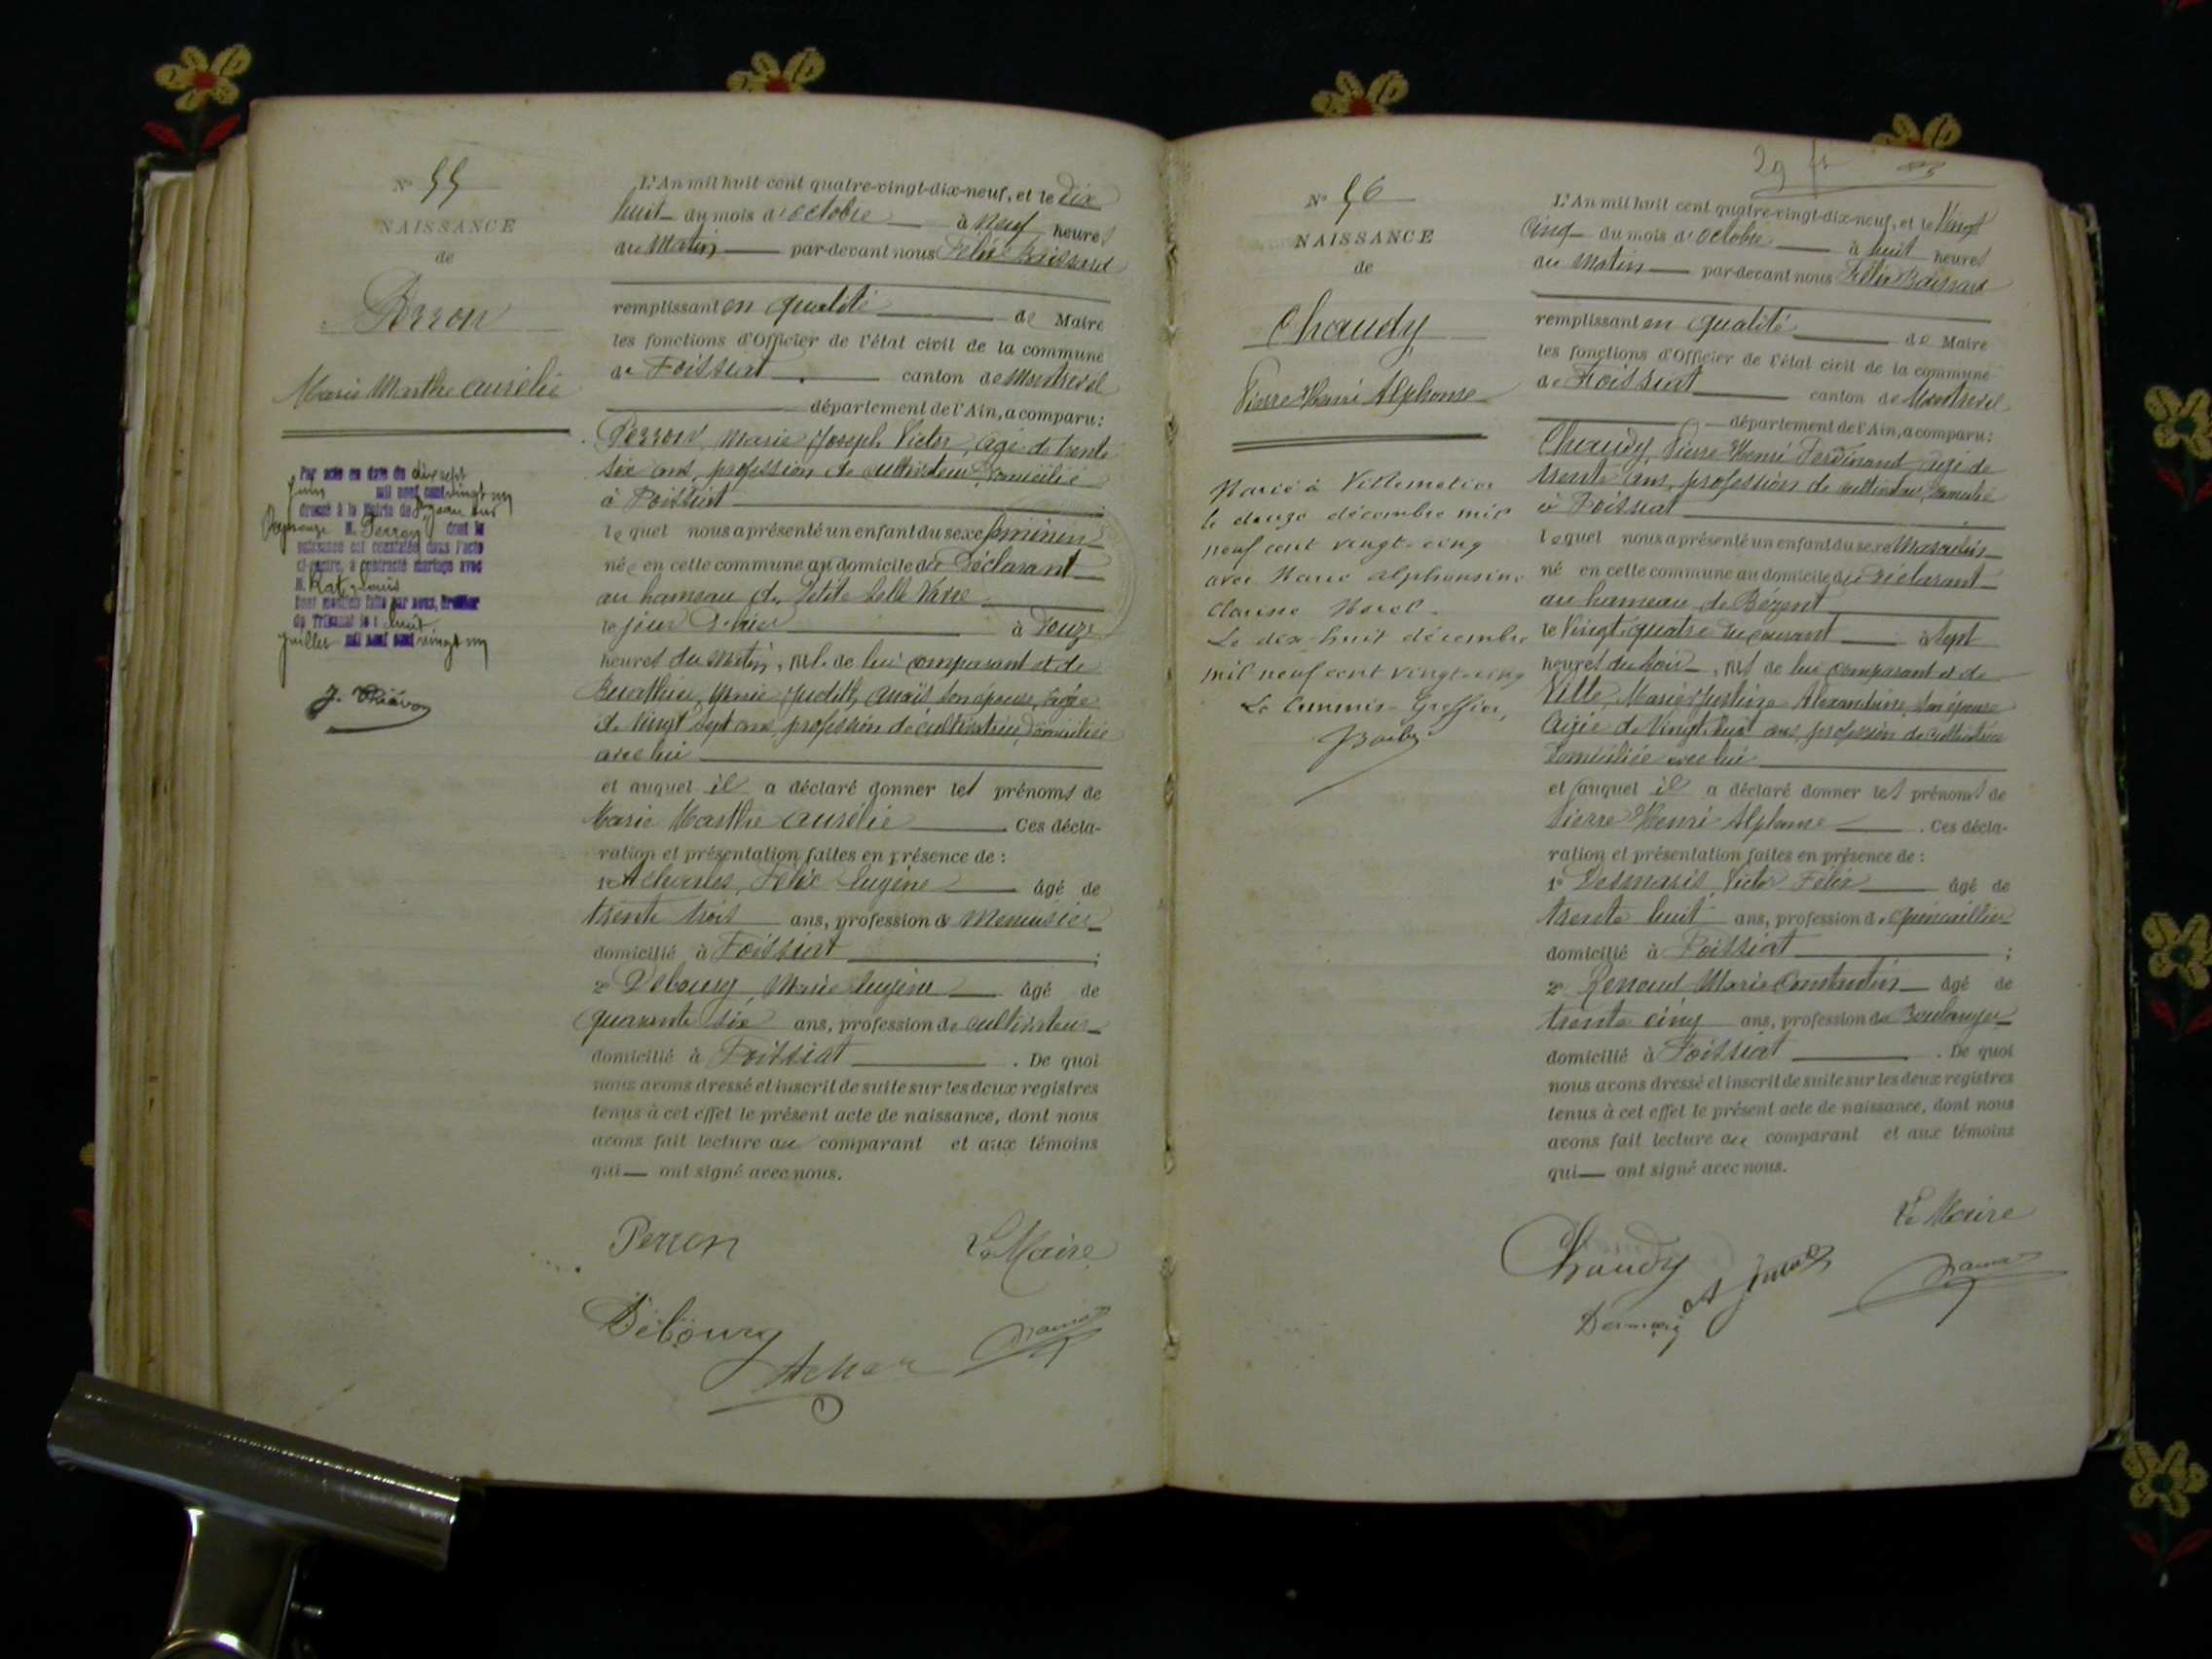 Nº 55
NAISSANCE
de
Perron
Marie Marthe Aurélie
Par acte en date du dix sept
juin mil neuf cent vingt un
dressé à la Mairie de
M. Perron dont la
naissance est constatée dans l'acte
ci-contre, a contracté mariage avec
M. Rat, Louis
Dont mention faite par nous, Greffier
du Tribunal le huit
juillet mil neuf cent vingt un
L'An mil huit cent quatre-vingt-dix-neuf, et le Dix
huit du mois d'octobre à neuf heures
du Matin par-devant nous Félix
remplissant en qualité de Maire
les fonctions d'Officier de l'état civil de la commune
de Foissiat canton de Montrevel
département de l'Ain, a comparu:
Perron, Marie Joseph Victor, âgé de trente
six ans, profession de cultivateur, domicilié
à Foissiat
lequel nous a présenté un enfant du sexe féminin
née en cette commune au domicile du Déclarant
au hameau de Petite
le jour d'hier à Douze
heures du matin, fil. de lui comparant et de
Marie Judith son épouse, âgée
de vingt sept ans, profession de cultivatrice, domiciliée
avec lui
et auquel il a déclaré donner les prénoms de
Marie Marthe Aurélie Ces décla-
ration et présentation faites en présence de :
1º Félix Eugène âgé de
trente trois ans, profession de Menuisier
domicilié à Foissiat ;
2º Debourg, Marie Eugène âgé de
quarante six ans, profession de cultivateur
domicilié à Foissiat . De quoi
nous avons dressé et inscrit de suite sur les deux registres
tenus à cet effet le présent acte de naissance, dont nous
avons fait lecture au comparant et aux témoins
qui ont signé avec nous.
Perron Le Maire
Debourg
29 ft
Nº 56
NAISSANCE
de
Chaudy
Pierre Henri Alphonse
Marié à Villemotier
le douze décembre mil
neuf cent vingt-cinq
avec Marie Alphonsine
Morel.
Le dix-huit décembre
mil neuf cent vingt-cinq
Le Commis-Greffier,
L'An mil huit cent quatre-vingt-dix-neuf, et le Vingt
cinq du mois d'octobre à huit heures
du Matin par-devant nous Félix
remplissant en qualité de Maire
les fonctions d'Officier de l'état civil de la commune
de Foissiat canton de Montrevel
département de l'Ain, a comparu:
Chaudy, Pierre Henri Ferdinand âgé de
trente ans, profession de cultivateur, domicilié
à Foissiat
lequel nous a présenté un enfant du sexe Masculin
né en cette commune au domicile du Déclarant
au hameau de Bézent
le Vingt quatre du courant à Sept
heures du soir, fils de lui comparant et de
Ville, Marie Justine Alexandrine, son épouse
âgée de Vingt huit ans, profession de cultivatrice
domiciliée avec lui
et auquel il a déclaré donner les prénoms de
Pierre Henri Alphonse . Ces décla-
ration et présentation faites en présence de :
1º Desmaris, Victor Félix âgé de
trente huit ans, profession de quincaillier
domicilié à Foissiat ;
2º Renaud Marie Constantin âgé de
trente cinq ans, profession de Boulanger
domicilié à Foissiat . De quoi
nous avons dressé et inscrit de suite sur les deux registres
tenus à cet effet le présent acte de naissance, dont nous
avons fait lecture au comparant et aux témoins
qui ont signé avec nous.
Le Maire
Chaudy